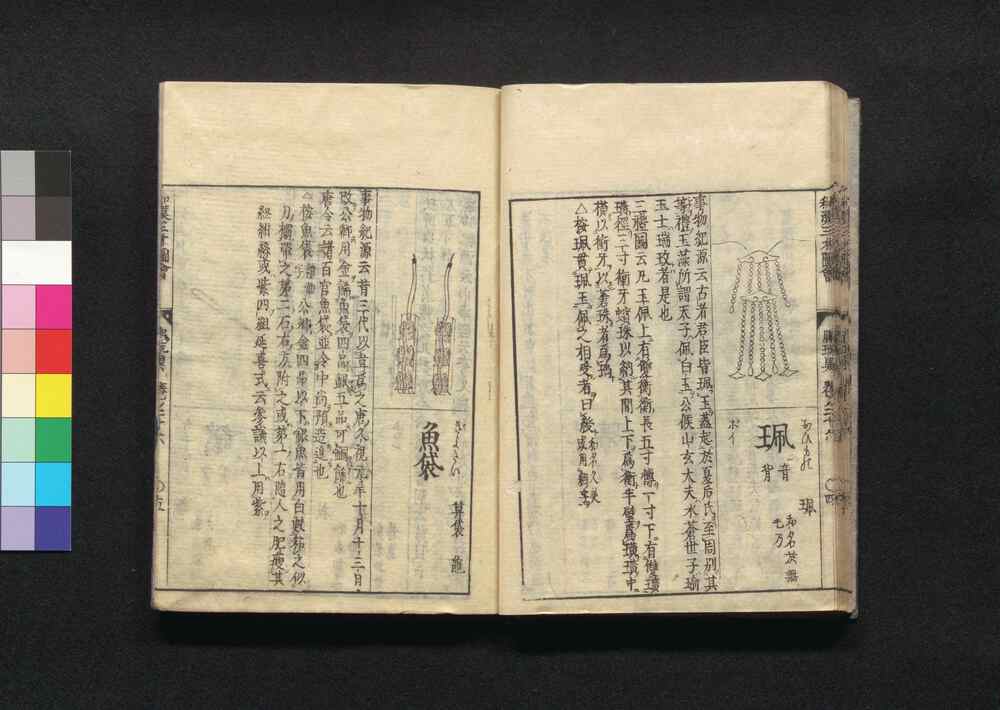 おひもの
珮
音
背
ホイ
珮
和名
事物紀源云古者君臣皆珮玉蓋起於夏后氏至周別其
制禮玉藻所謂天子佩白玉公侯山玄大夫水蒼世子瑜
玉士瑞玟者是也
三禮圖云凡玉佩上有雙衡衡長五寸慱一寸下有雙璜
璜徑三寸衝牙蠙珠以納其間上下為衡半璧為璜璜中
橫以衝牙以蒼珠者為瑀
△按珮貫珮玉佩之相受者曰綬
和漢三才圖會
卷之二十六
ぎよたい
魚袋
算袋
龜
事物紀源云昔三代以韋為之唐久視元年十月十三日
改公卿用金飾魚袋四品銀五品可鍮飾也
唐令云諸百官魚袋並令中尚預造進也
△按魚袋 公卿金四品以下銀魚首用白 之似
刀 帶之第二石右方附之或第一石隨人之肥瘦其
組紺 或紫四組延喜式云參議以上用紫
和漢三才圖會
卷之二十六
〇十五